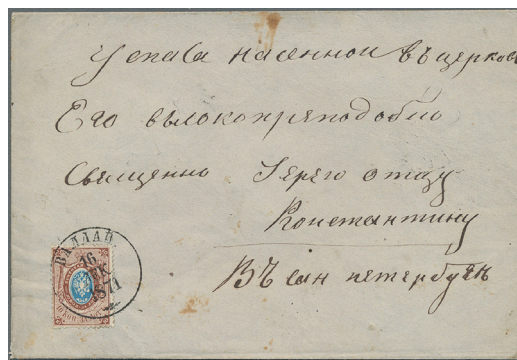 Успаса насенной въ церков
Его вылокопреподобїю
Священно Іерею отцу
Константину
Въ сан петербургъ
ВАЛДАЙ
16
ДЕК
1871